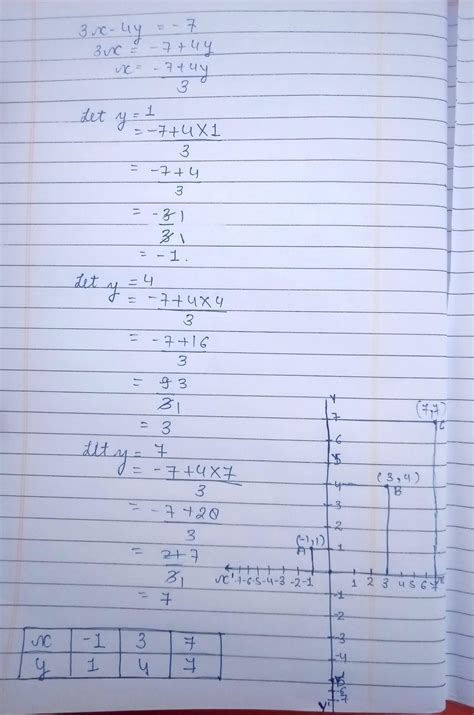 3x-4y = -7
3x = -7+4y
x = -7+4y
3
Let y = 1
= -7+4×1
3
= -7+4
3
= -3 1
3 1
= -1.
Let y = 4
= -7+4×4
3
= -7+16
3
= 9 3
3 1
= 3
Let y = 7
= -7+4×7
3
= -7+28
3
= 21 7
3 1
= 7
x -1 3 7
y 1 4 7
Y
(7,7)
7
C
6
5
(3,4)
4
B
3
2
(-1,1)
A
1
x' -7-6-5-4-3-2-1 1 2 3 4 5 6 7 x
-1
-2
-3
-4
-6
-7
Y'